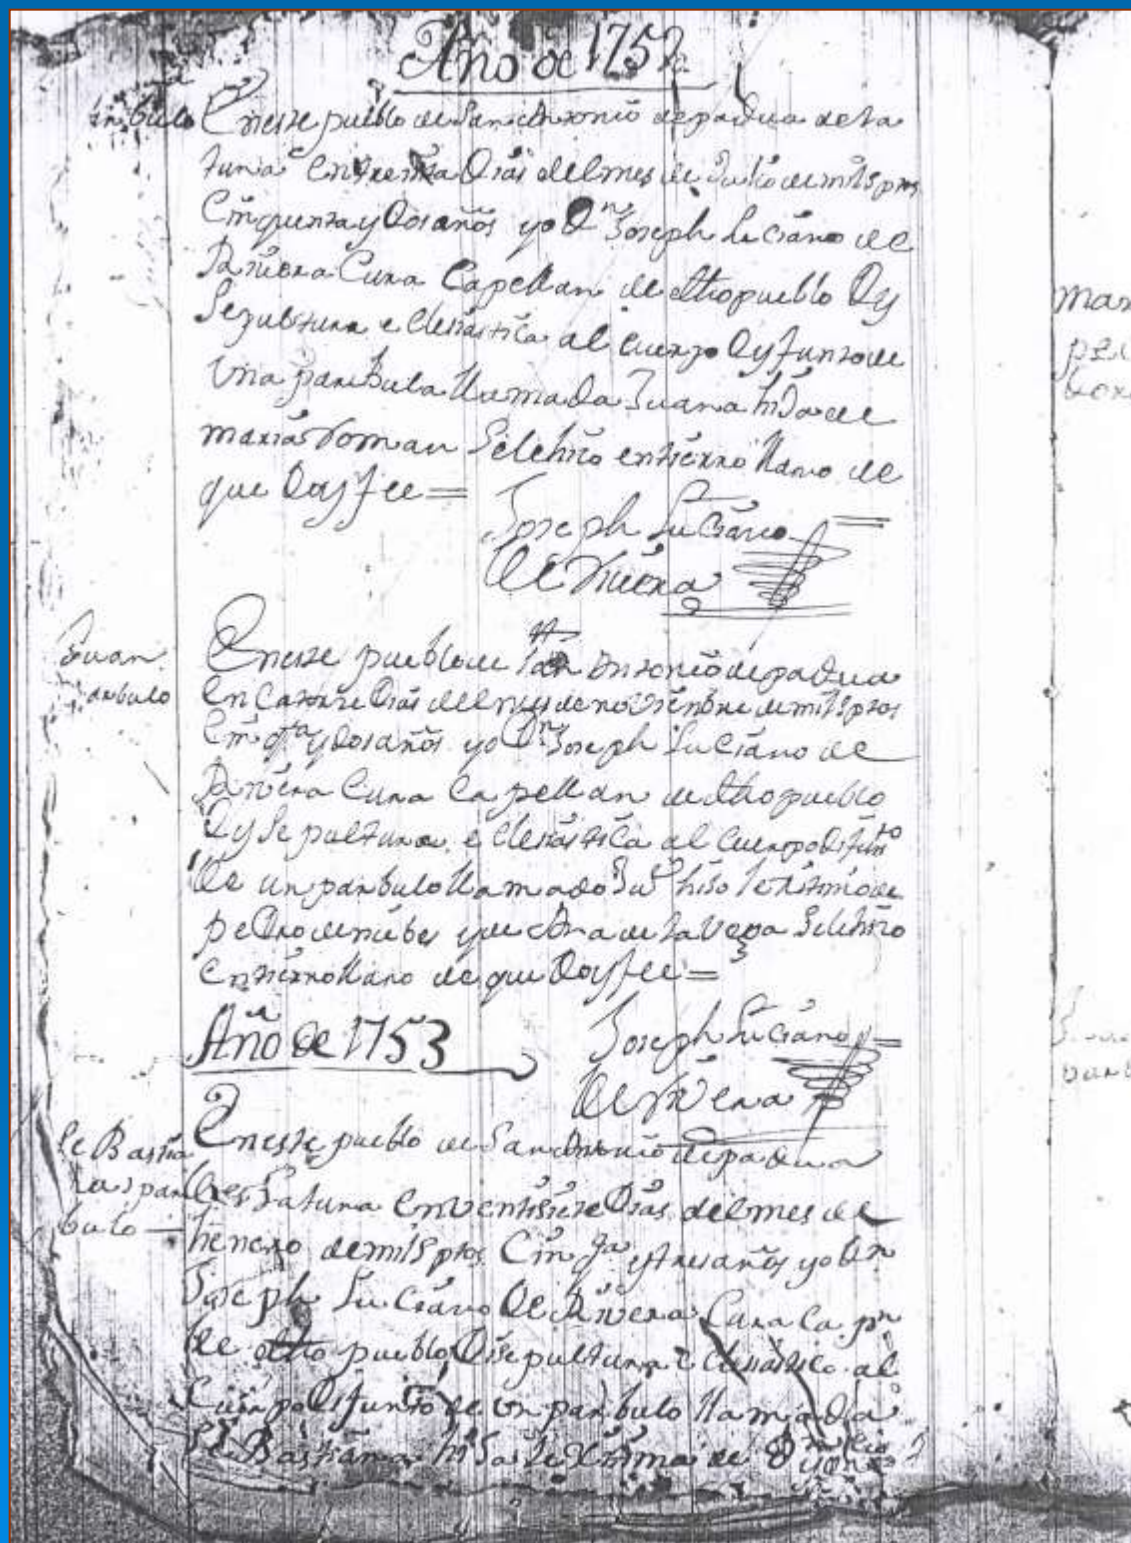 Año de 1752
En este pueblo de San Antonio de padua de la
tuna en treinta Dias del mes de Julio de mil
Cinquenta y Dos años yo Dn Joseph Luciano de
Rivera Cura Capellan de dho pueblo Dy
Sepultura eclesiastica al cuerpo Dyfunto de
Una parbula llamada Juana hija de
maria Roman Se le hiso entierro llano de
que Doy fee =
Joseph Luciano
De Rivera
Juan
parbulo
En este pueblo de San Antonio de padua
en Catorse Dias del mes de noviembre de mil
Cinqta y Dos años yo Dn Joseph Luciano de
Rivera Cura Capellan de dho pueblo
Dy Sepultura eclesiastica al Cuerpo Difunto
De un parbulo llamado Jun hijo lexitimo de
pedro de niebes y de Ana de la Vega Se le hiso
entierro llano de que Doy fee =
Año de 1753
Joseph Luciano =
De Rivera
Se Bastia
na parbulo
En este pueblo de San Antonio de padua
de la tuna en ventisiete Dias del mes de
henero de mil Cinqta y tres años yo Dn
Joseph Luciano De Rivera Cura Capn
de dho pueblo Di sepultura eclesiastica al
Cuerpo Difunto de un parbulo llamada
Se Bastiana hija lexitima de